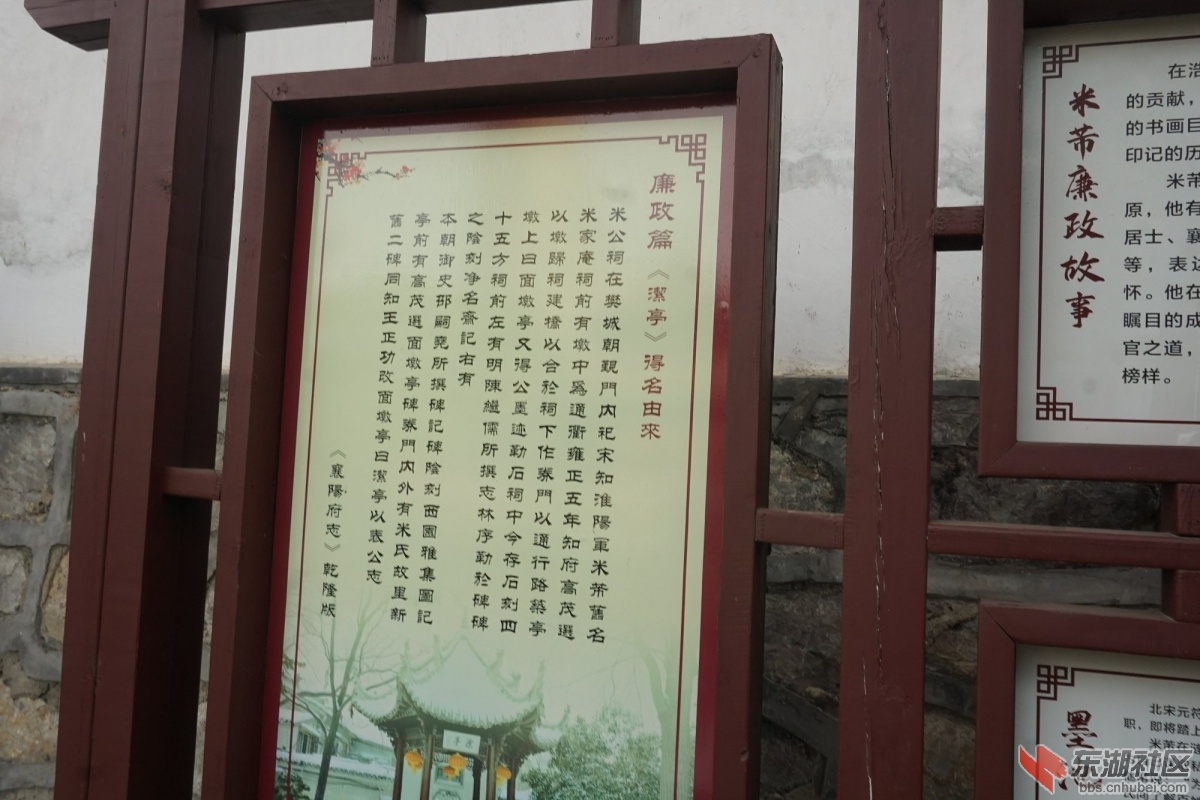 廉政篇《潔亭》得名由來
米公祠在樊城朝覲門內祀宋知淮陽軍米芾舊名
米家庵祠前有墩中爲通衢雍正五年知府高茂選
以墩歸祠建橋以合於祠下作券門以通行路築亭
墩上曰面墩亭又得公墨迹勒石祠中今存石刻四
十五方祠前左有明陳繼儒所撰志林序勒於碑碑
之陰刻净名齋記右有
本朝御史邵嗣堯所撰碑記碑陰刻西園雅集圖記
亭前有高茂選面墩亭碑券門內外有米氏故里新
舊二碑同知王正功改面墩亭曰潔亭以表公志
《襄陽府志》乾隆版
米芾廉政故事
在浩
的贡献，
的书画巨
印记的历
米芾
原，他有
居士、襄
等，表达
怀。他在
瞩目的成
官之道，
榜样。
墨
北宋元符
职，即将踏上
米芾在涟
东湖社区
bbs.cnhubei.com